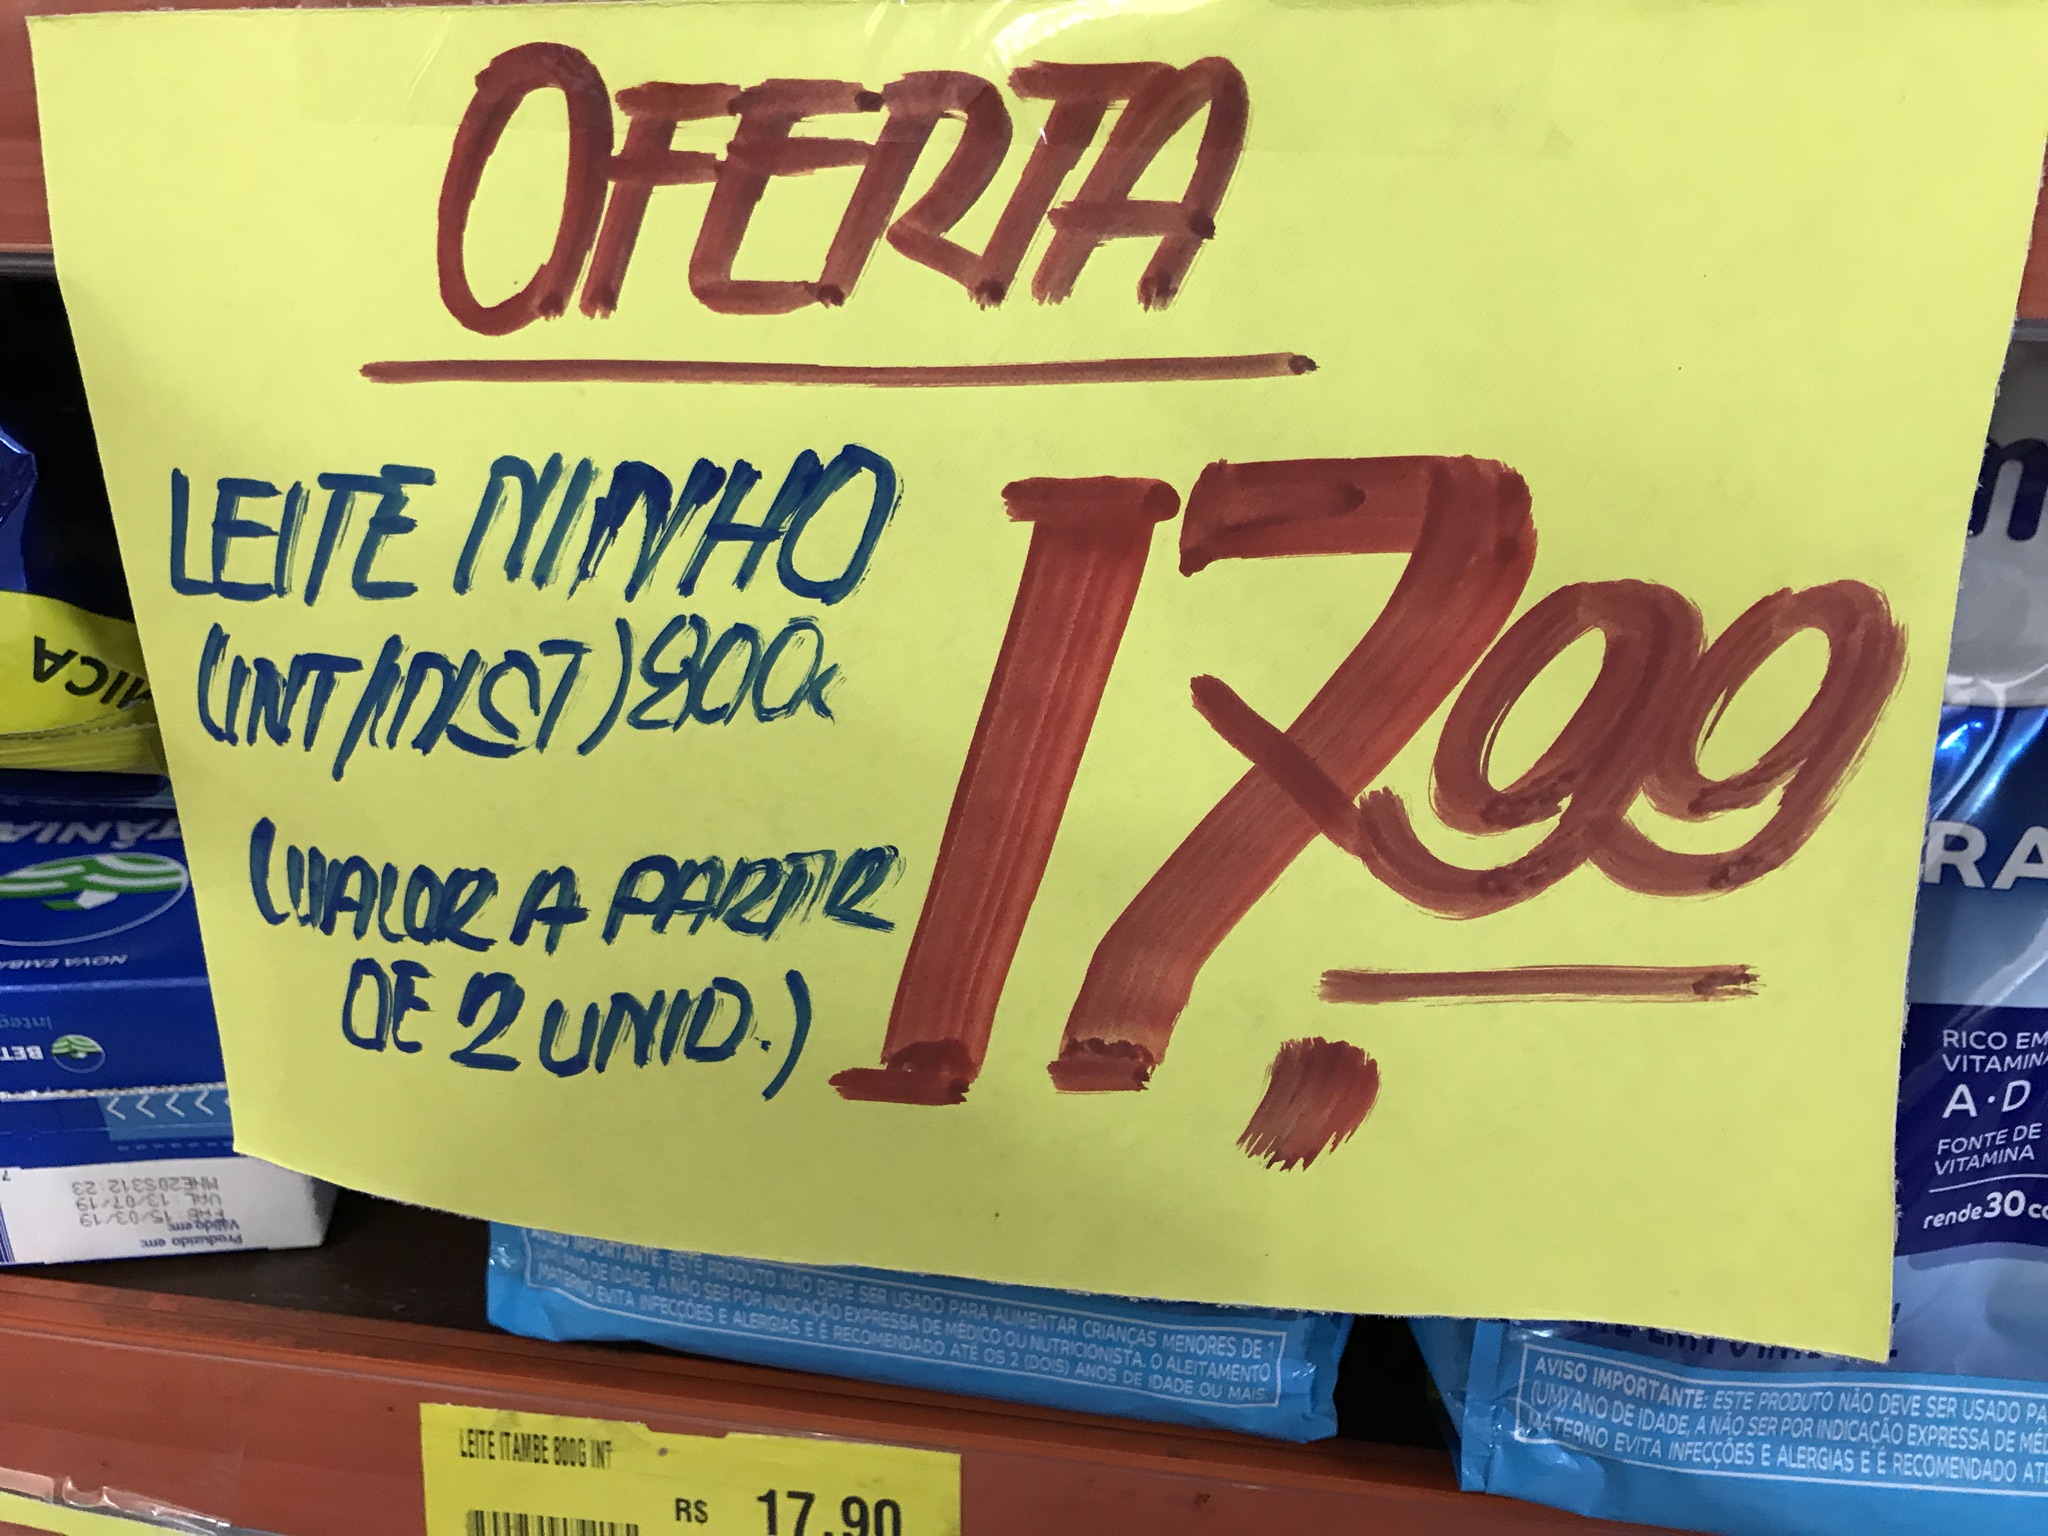 OFERTA
LEITE NINHO
(INT/INST) 800G
17,99
(VALOR A PARTIR
DE 2 UNID.)
MICA
TÂNIA
NOVA EMBA
Integ
BET
Produzido em:
Válido em:
FAB: 15/03/19
VAL: 13/07/19
MNE20S312:23
RA
RICO EM
VITAMINA
A·D
FONTE DE
VITAMINA
rende 30 co
AVISO IMPORTANTE: ESTE PRODUTO NÃO DEVE SER USADO PARA ALIMENTAR CRIANÇAS MENORES DE 1
(UM) ANO DE IDADE, A NÃO SER POR INDICAÇÃO EXPRESSA DE MÉDICO OU NUTRICIONISTA. O ALEITAMENTO
MATERNO EVITA INFECÇÕES E ALERGIAS E É RECOMENDADO ATÉ OS 2 (DOIS) ANOS DE IDADE OU MAIS.
AVISO IMPORTANTE: ESTE PRODUTO NÃO DEVE SER USADO PA
(UM) ANO DE IDADE, A NÃO SER POR INDICAÇÃO EXPRESSA DE MÉD
MATERNO EVITA INFECÇÕES E ALERGIAS E É RECOMENDADO ATÉ
LEITE ITAMBE 800G INT
R$ 17,90